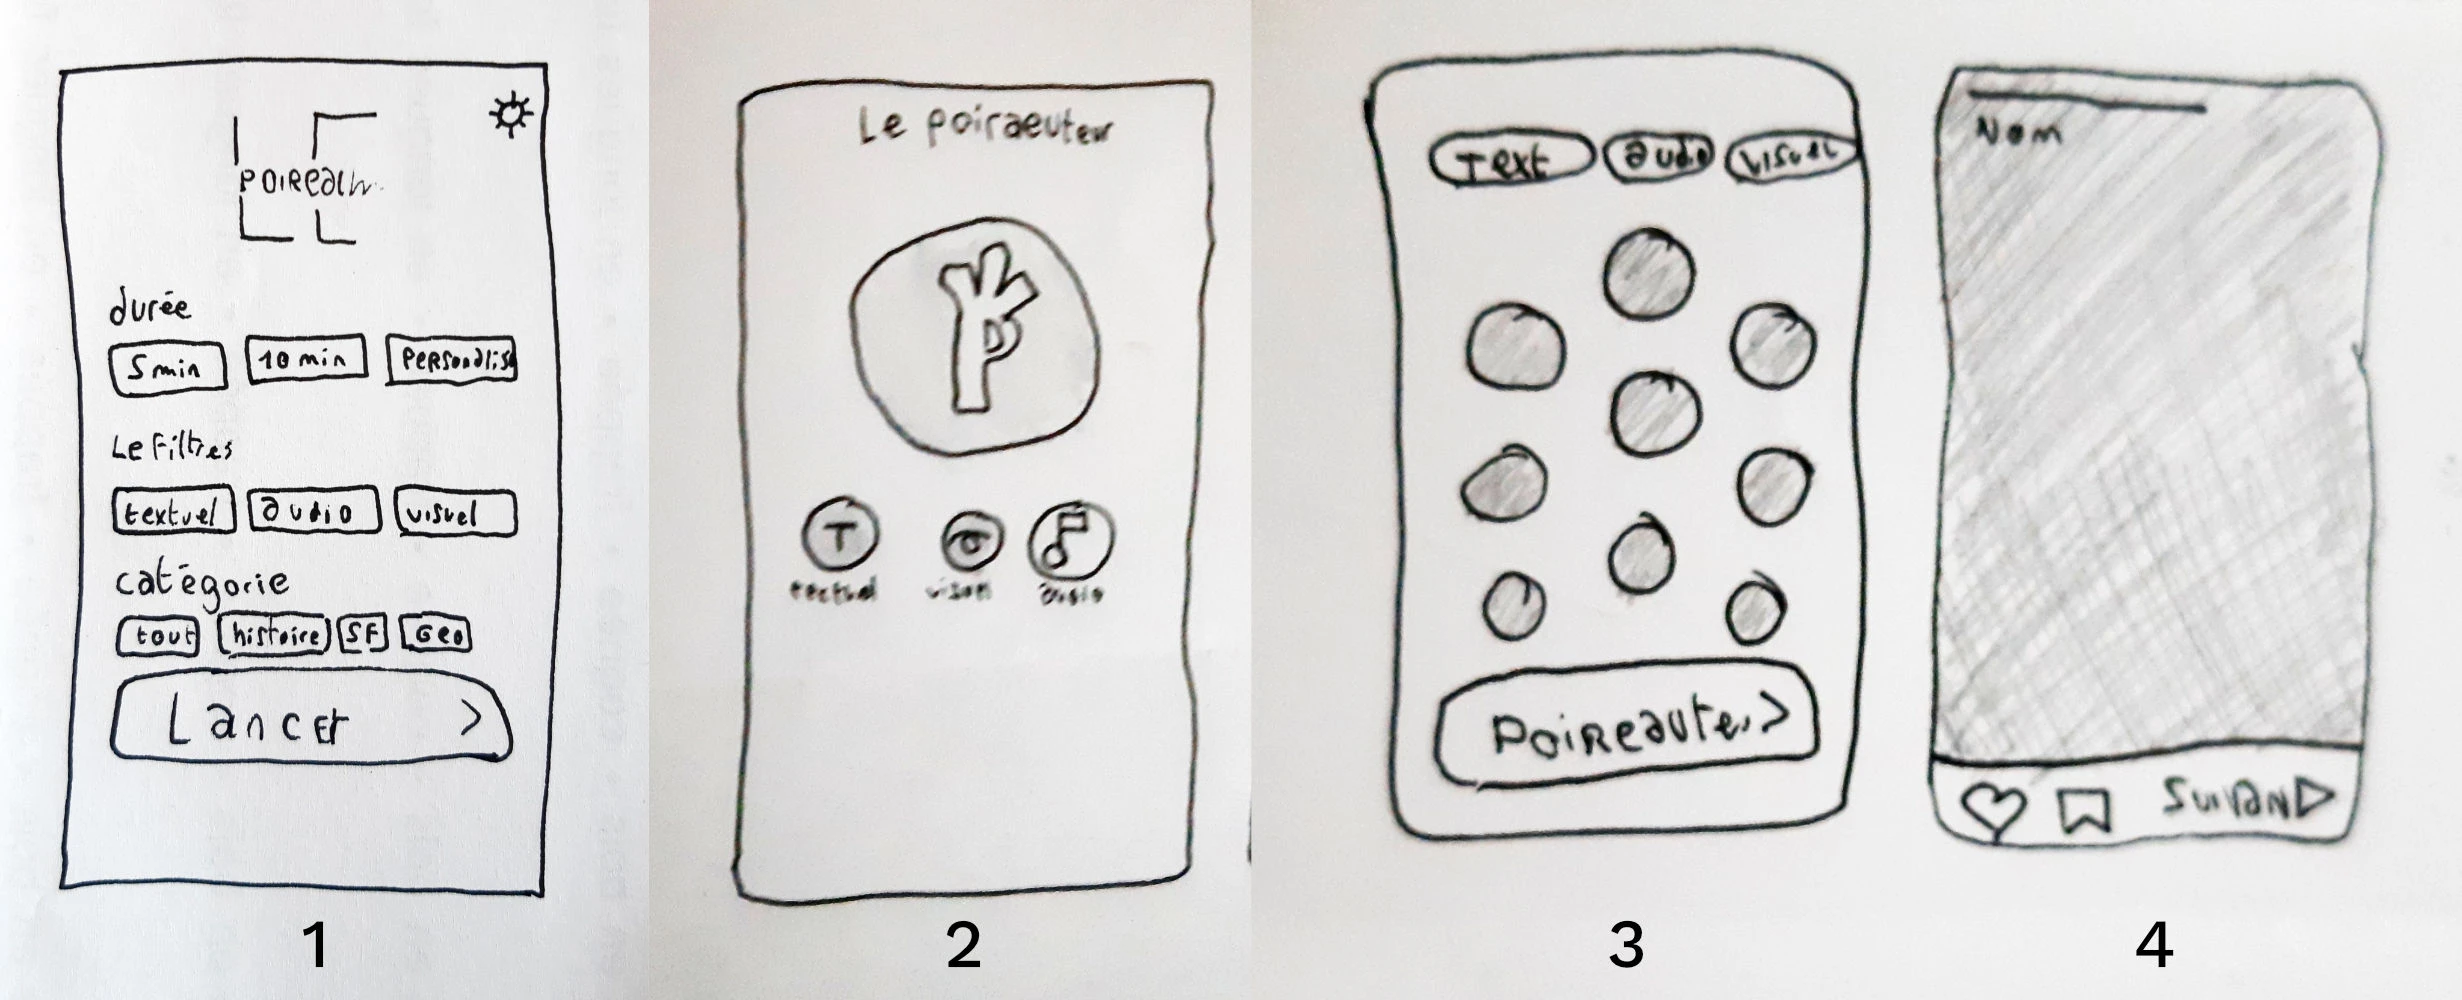 POIREAU
durée
5 min
10 min
PERSONALIS
Le Filtres
textuel
audio
visuel
catégorie
tout
histoire
SF
Geo
Lancer >
1
Le poiraeuteur
P
T
textuel
audio
2
Text
audio
visuel
POIREAUTER >
3
Nom
SUIVAN
4